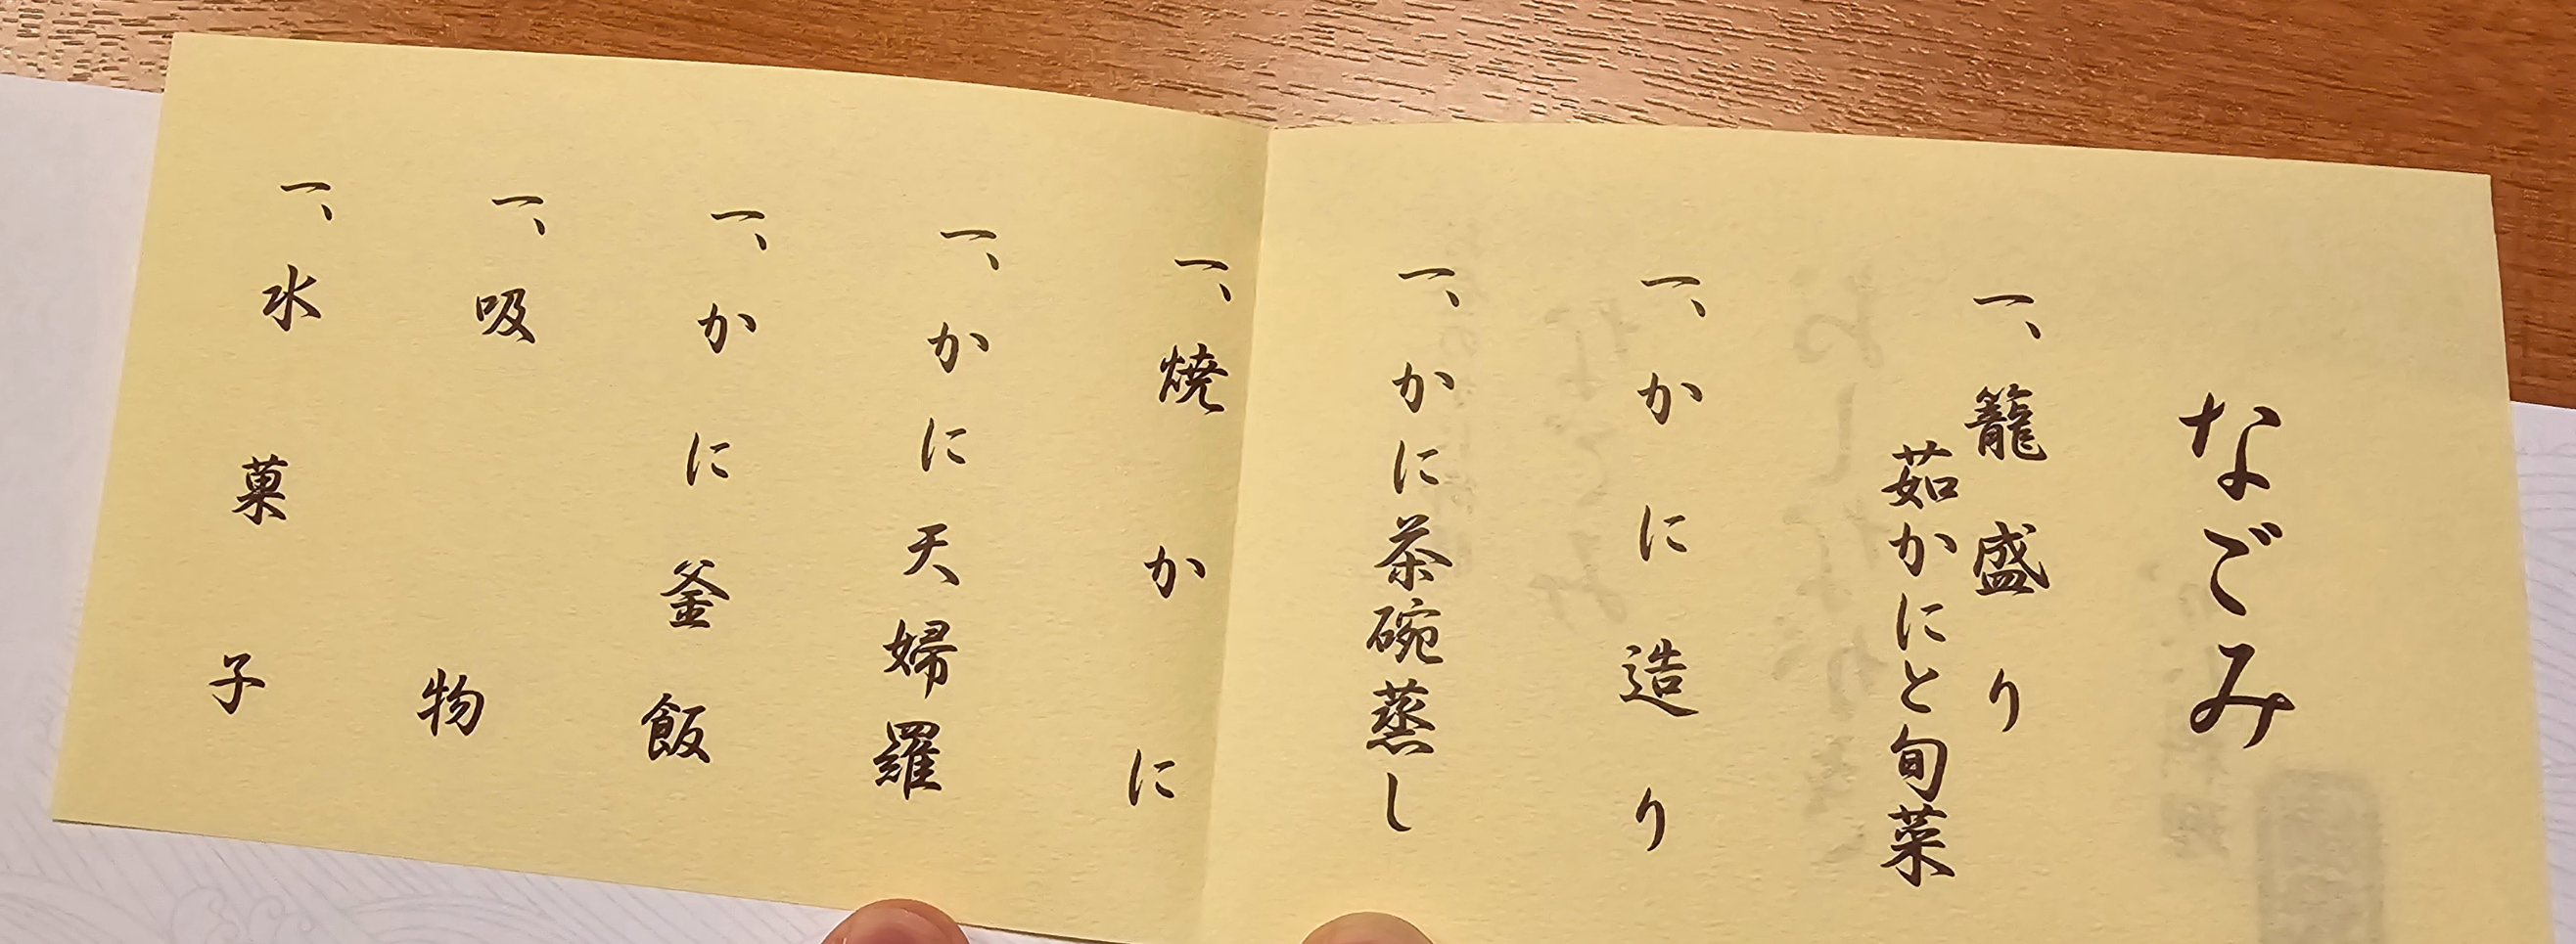 なごみ
一、籠盛り
茹かにと旬菜
一、かに造り
一、かに茶碗蒸し
一、焼かに
一、かに天婦羅
一、かに釜飯
一、吸物
一、水菓子